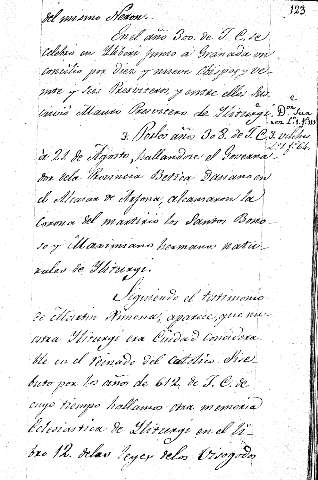 123
del mismo Neron.
En el año 300. de J. C. se
celebró en Iliberi junto a Granada un
concilio por diez y nueve Obispos, y ve-
inte y seis Presviteros y entre ellos
Mauro Presvitero de Iliturgi.
3. Por los años 308. de J. C.
a 21. de Agosto, hallandose el Governa-
dor de la Provincia Betica Daciano en
el Alcazar de Arjona, alcanzaron la
corona del martirio los Santos Bono-
so y Maximiano hermanos natu-
rales de Iliturgi.
Siguiendo el testimonio
de Martin Ximena, aparece, que nu-
estra Iliturgi era Ciudad considera
ble en el reinado del catolico Sise
buto por los años de 612. de J. C. de
cuyo tiempo hallamos otra memoria
eclesiastica de Iliturgi en el li-
bro 12. de las leyes de los Visogodos